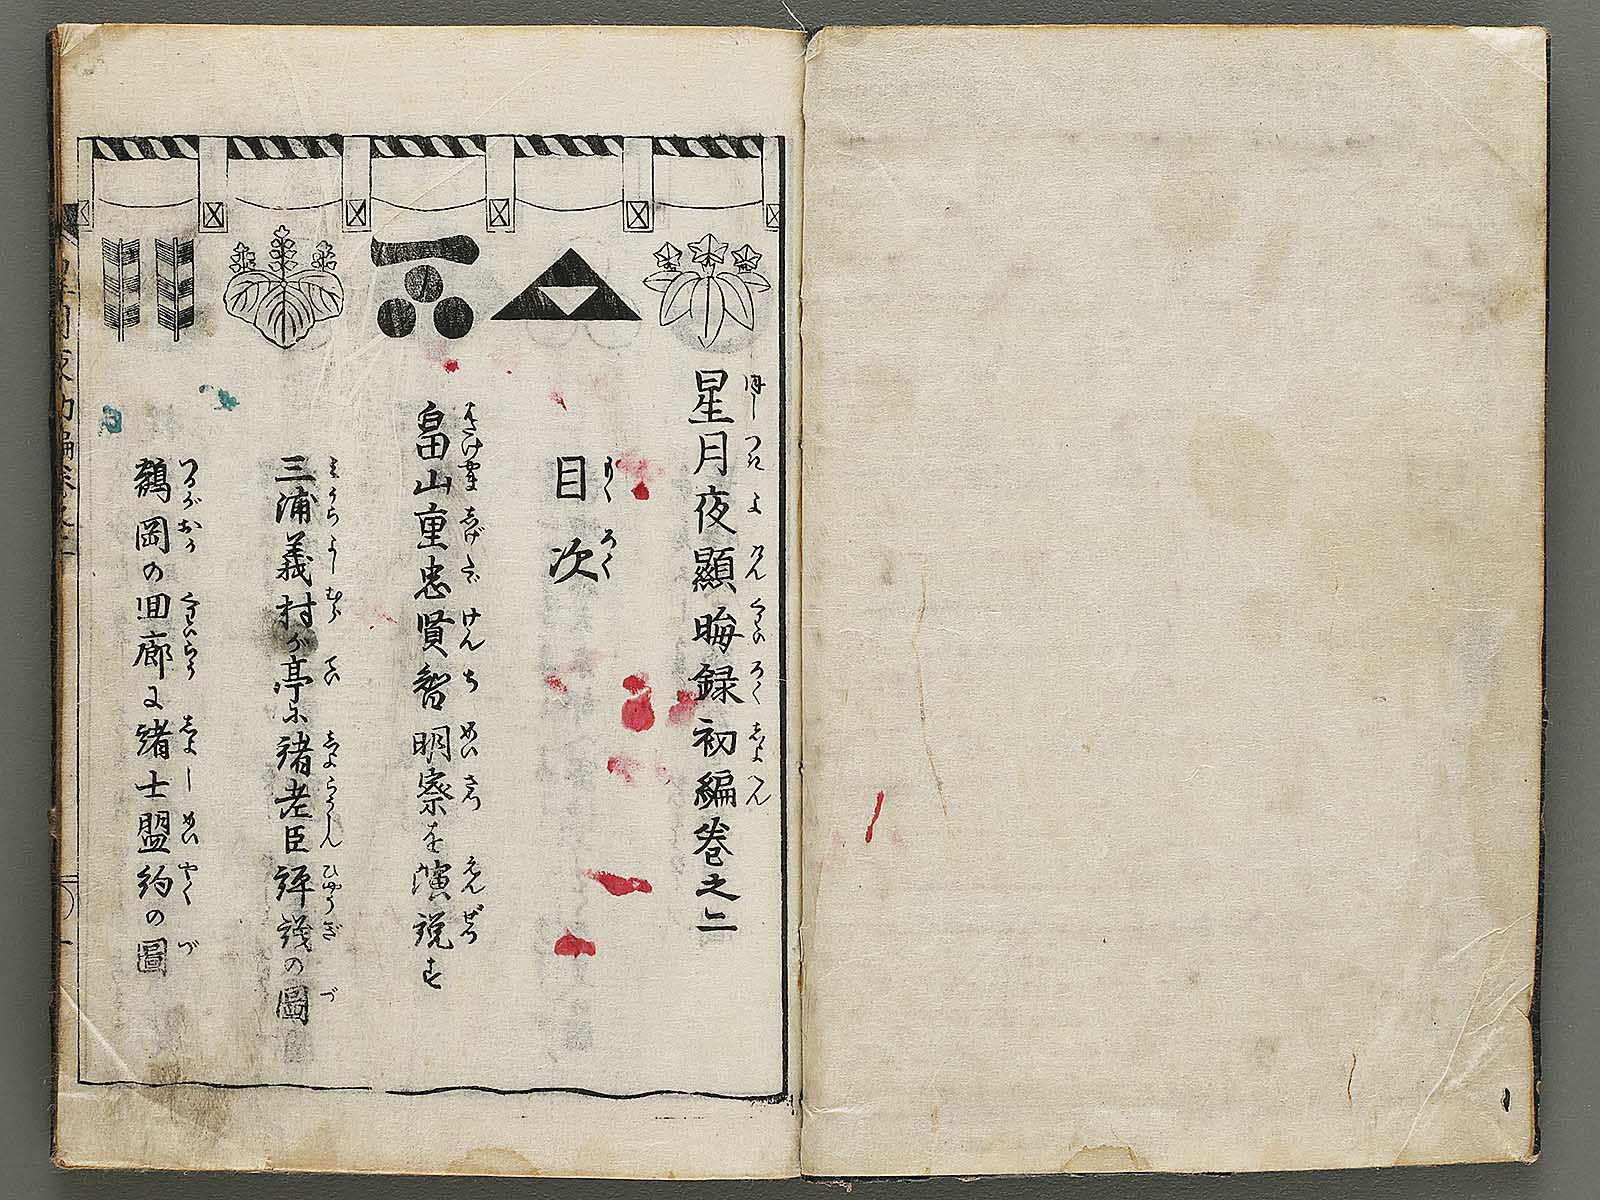 星月夜顯晦録初編巻之二
目次
畠山重忠賢智明察を演説す
三浦義村が亭に諸老臣評議の圖
鶴岡の回廊に諸士盟約の圖